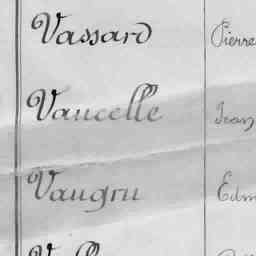 Vassard Pierre
Vaucelle Jean
Vaugru Edm